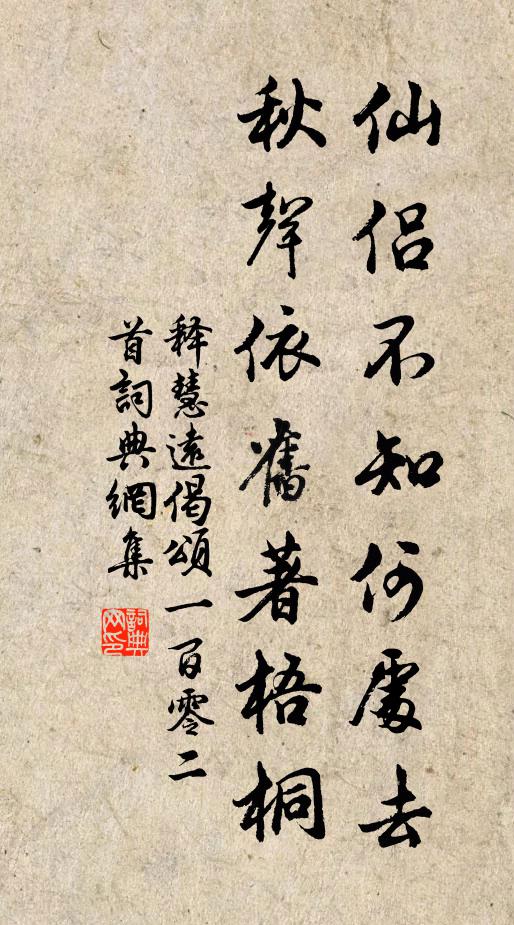 仙侣不知何處去
秋聲依舊著梧桐
释慧遠偈頌一百零二
首詞典網集
詞典
网印